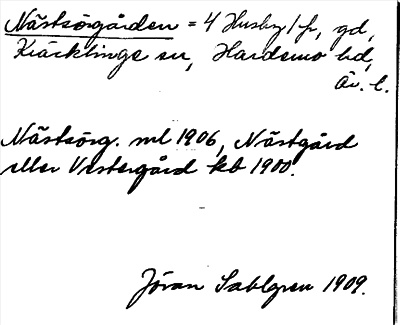 Nästsörgården = 4 Husby /fr, gd,
Kräcklinge sn, Hardemo hd,
Är. l.
Nästsörg. ml 1906, Nästgård
eller Vestergård kb 1900.
Jöran Sahlgren 1909.